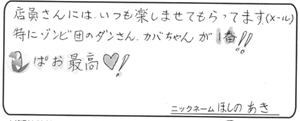 店員さんには、いつも楽しませてもらってます。(メール)
特にゾンビ団のダンさん、カバちゃんが1番!!
ぱお最高♡!
ニックネーム ほしの あき